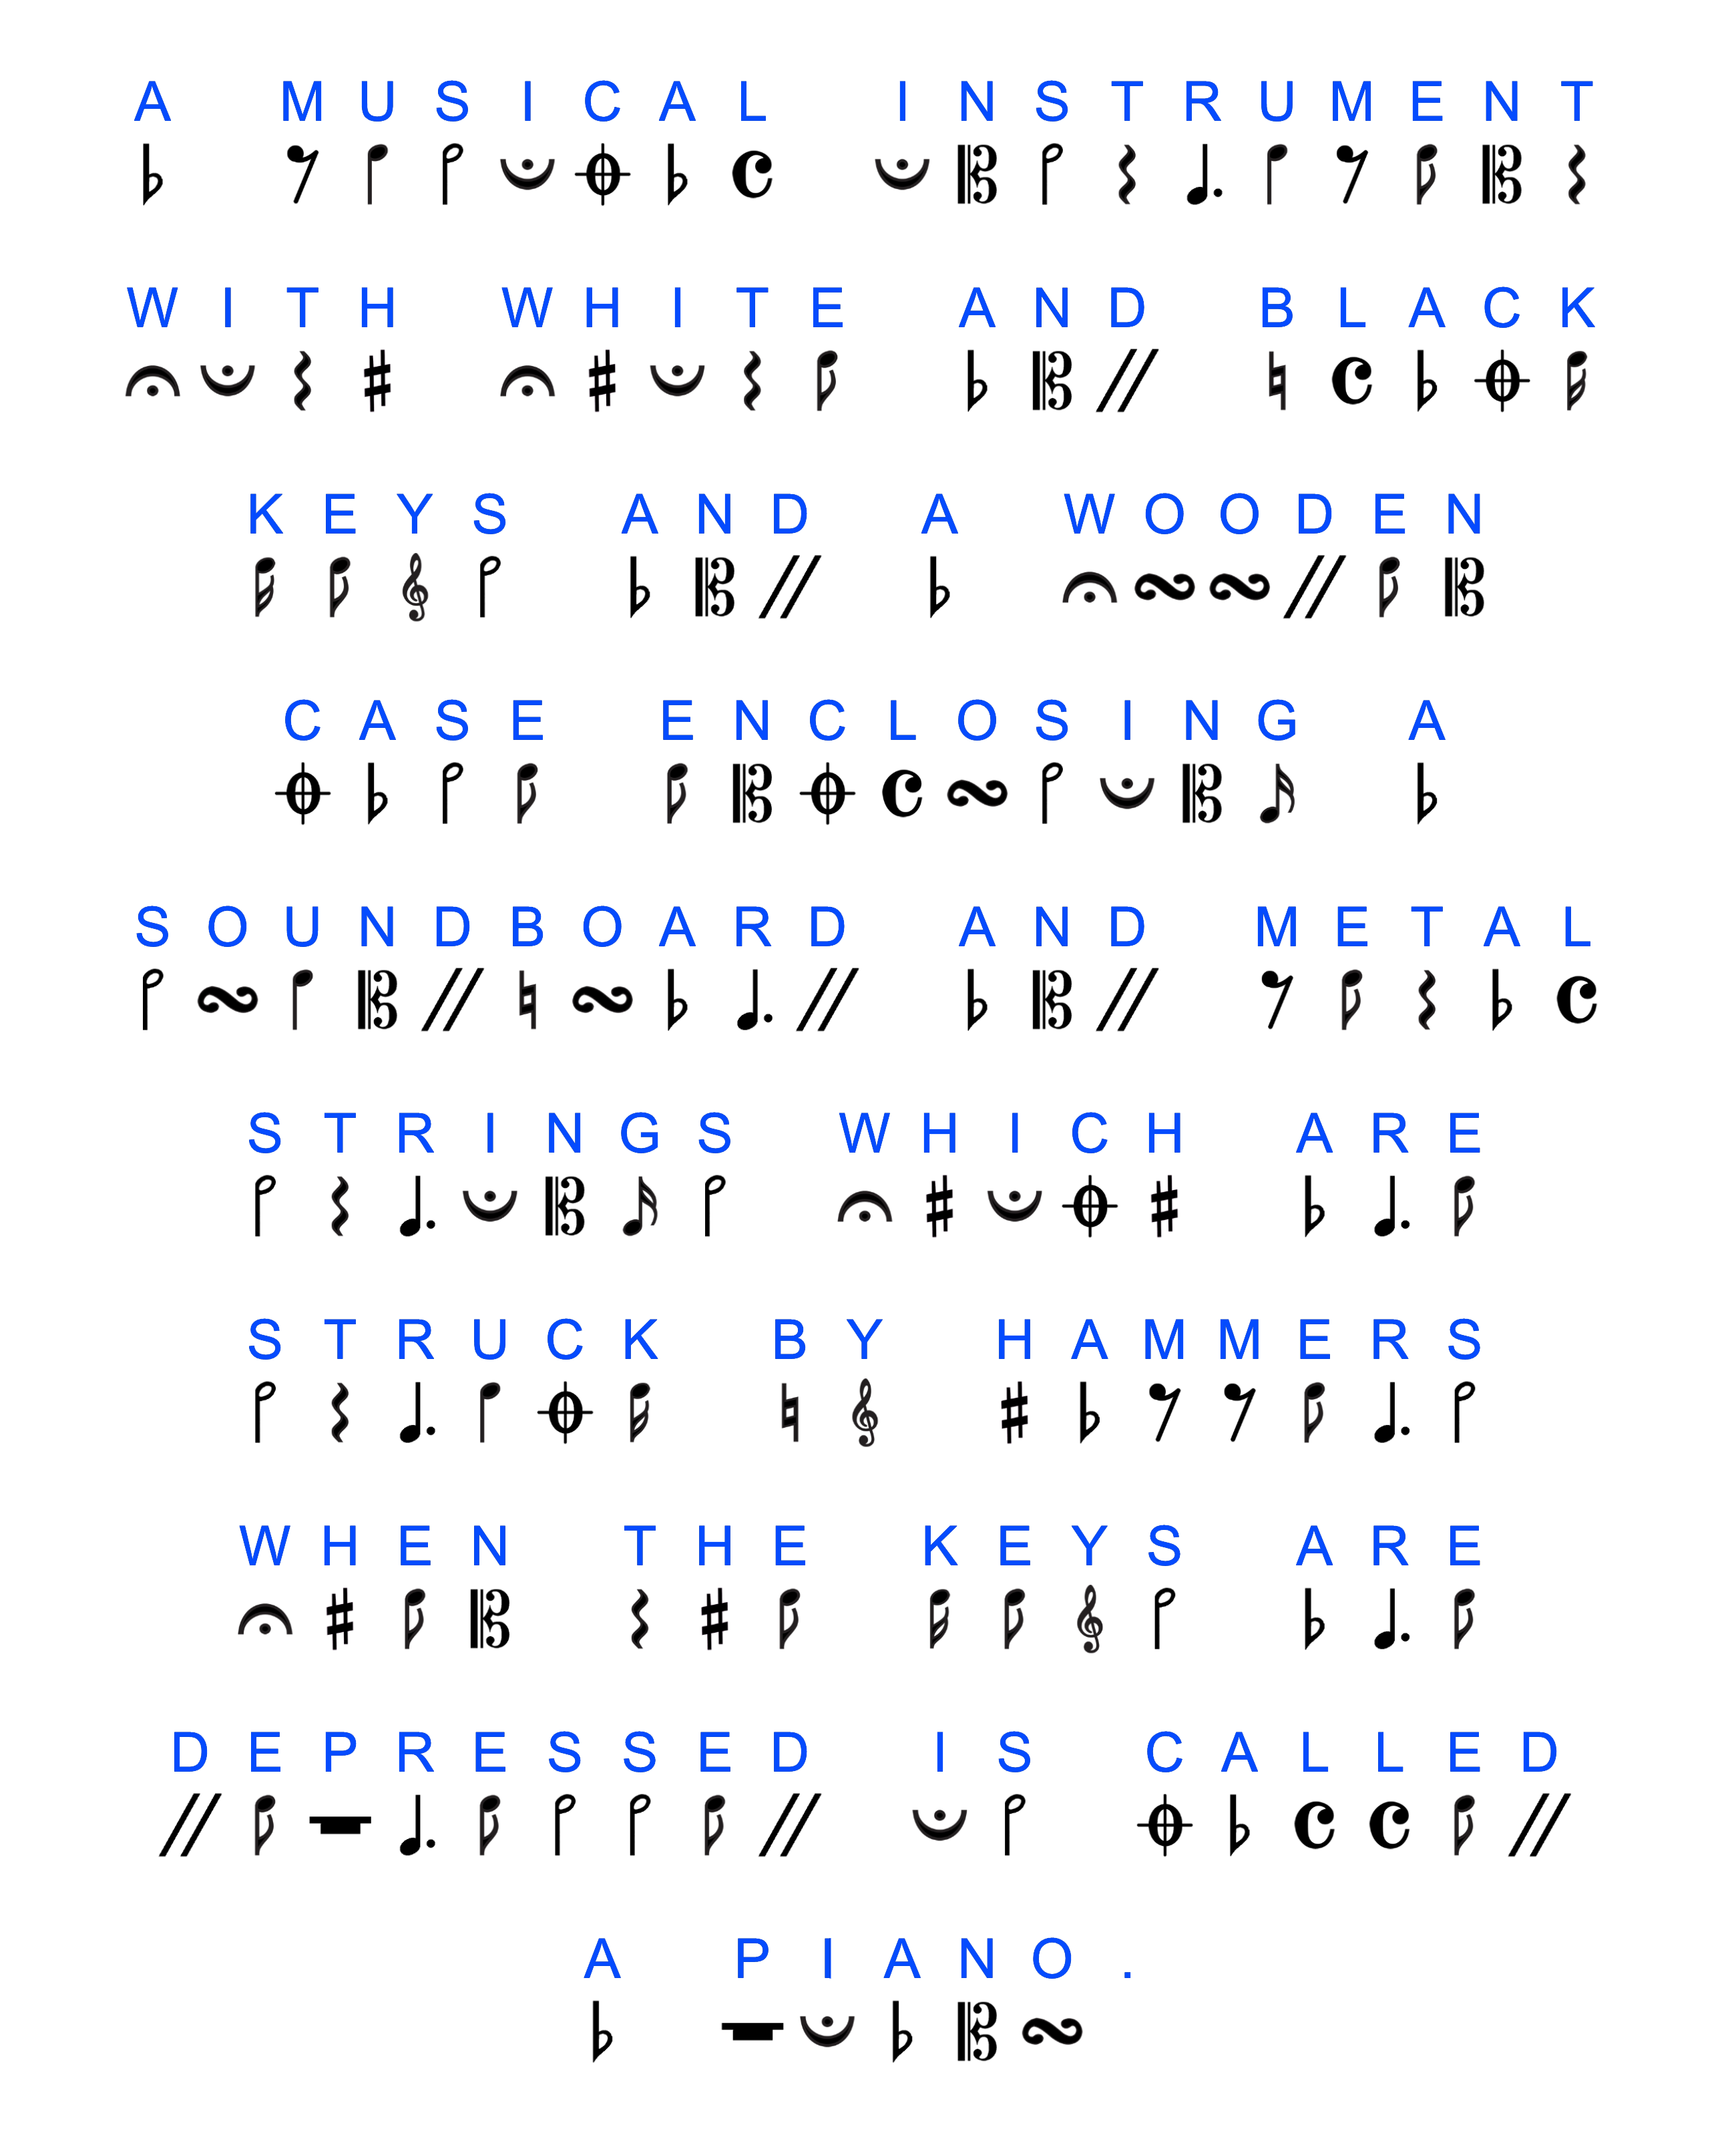 A MUSICAL INSTRUMENT
WITH WHITE AND BLACK
KEYS AND A WOODEN
CASE ENCLOSING A
SOUNDBOARD AND METAL
STRINGS WHICH ARE
STRUCK BY HAMMERS
WHEN THE KEYS ARE
DEPRESSED IS CALLED
A PIANO.